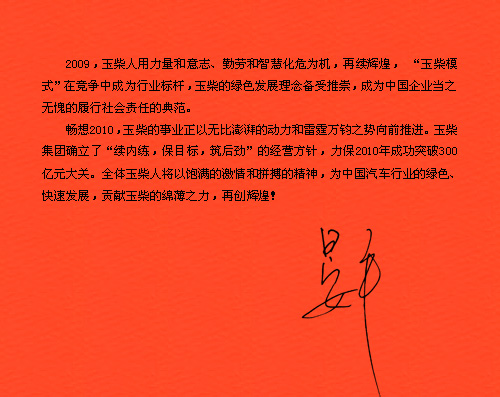 2009，玉柴人用力量和意志、勤劳和智慧化危为机，再续辉煌，“玉柴模
式”在竞争中成为行业标杆，玉柴的绿色发展理念备受推崇，成为中国企业当之
无愧的履行社会责任的典范。
畅想2010，玉柴的事业正以无比澎湃的动力和雷霆万钧之势向前推进。玉柴
集团确立了“续内练，保目标，筑后劲”的经营方针，力保2010年成功突破300
亿元大关。全体玉柴人将以饱满的激情和拼搏的精神，为中国汽车行业的绿色、
快速发展，贡献玉柴的绵薄之力，再创辉煌！
晏平